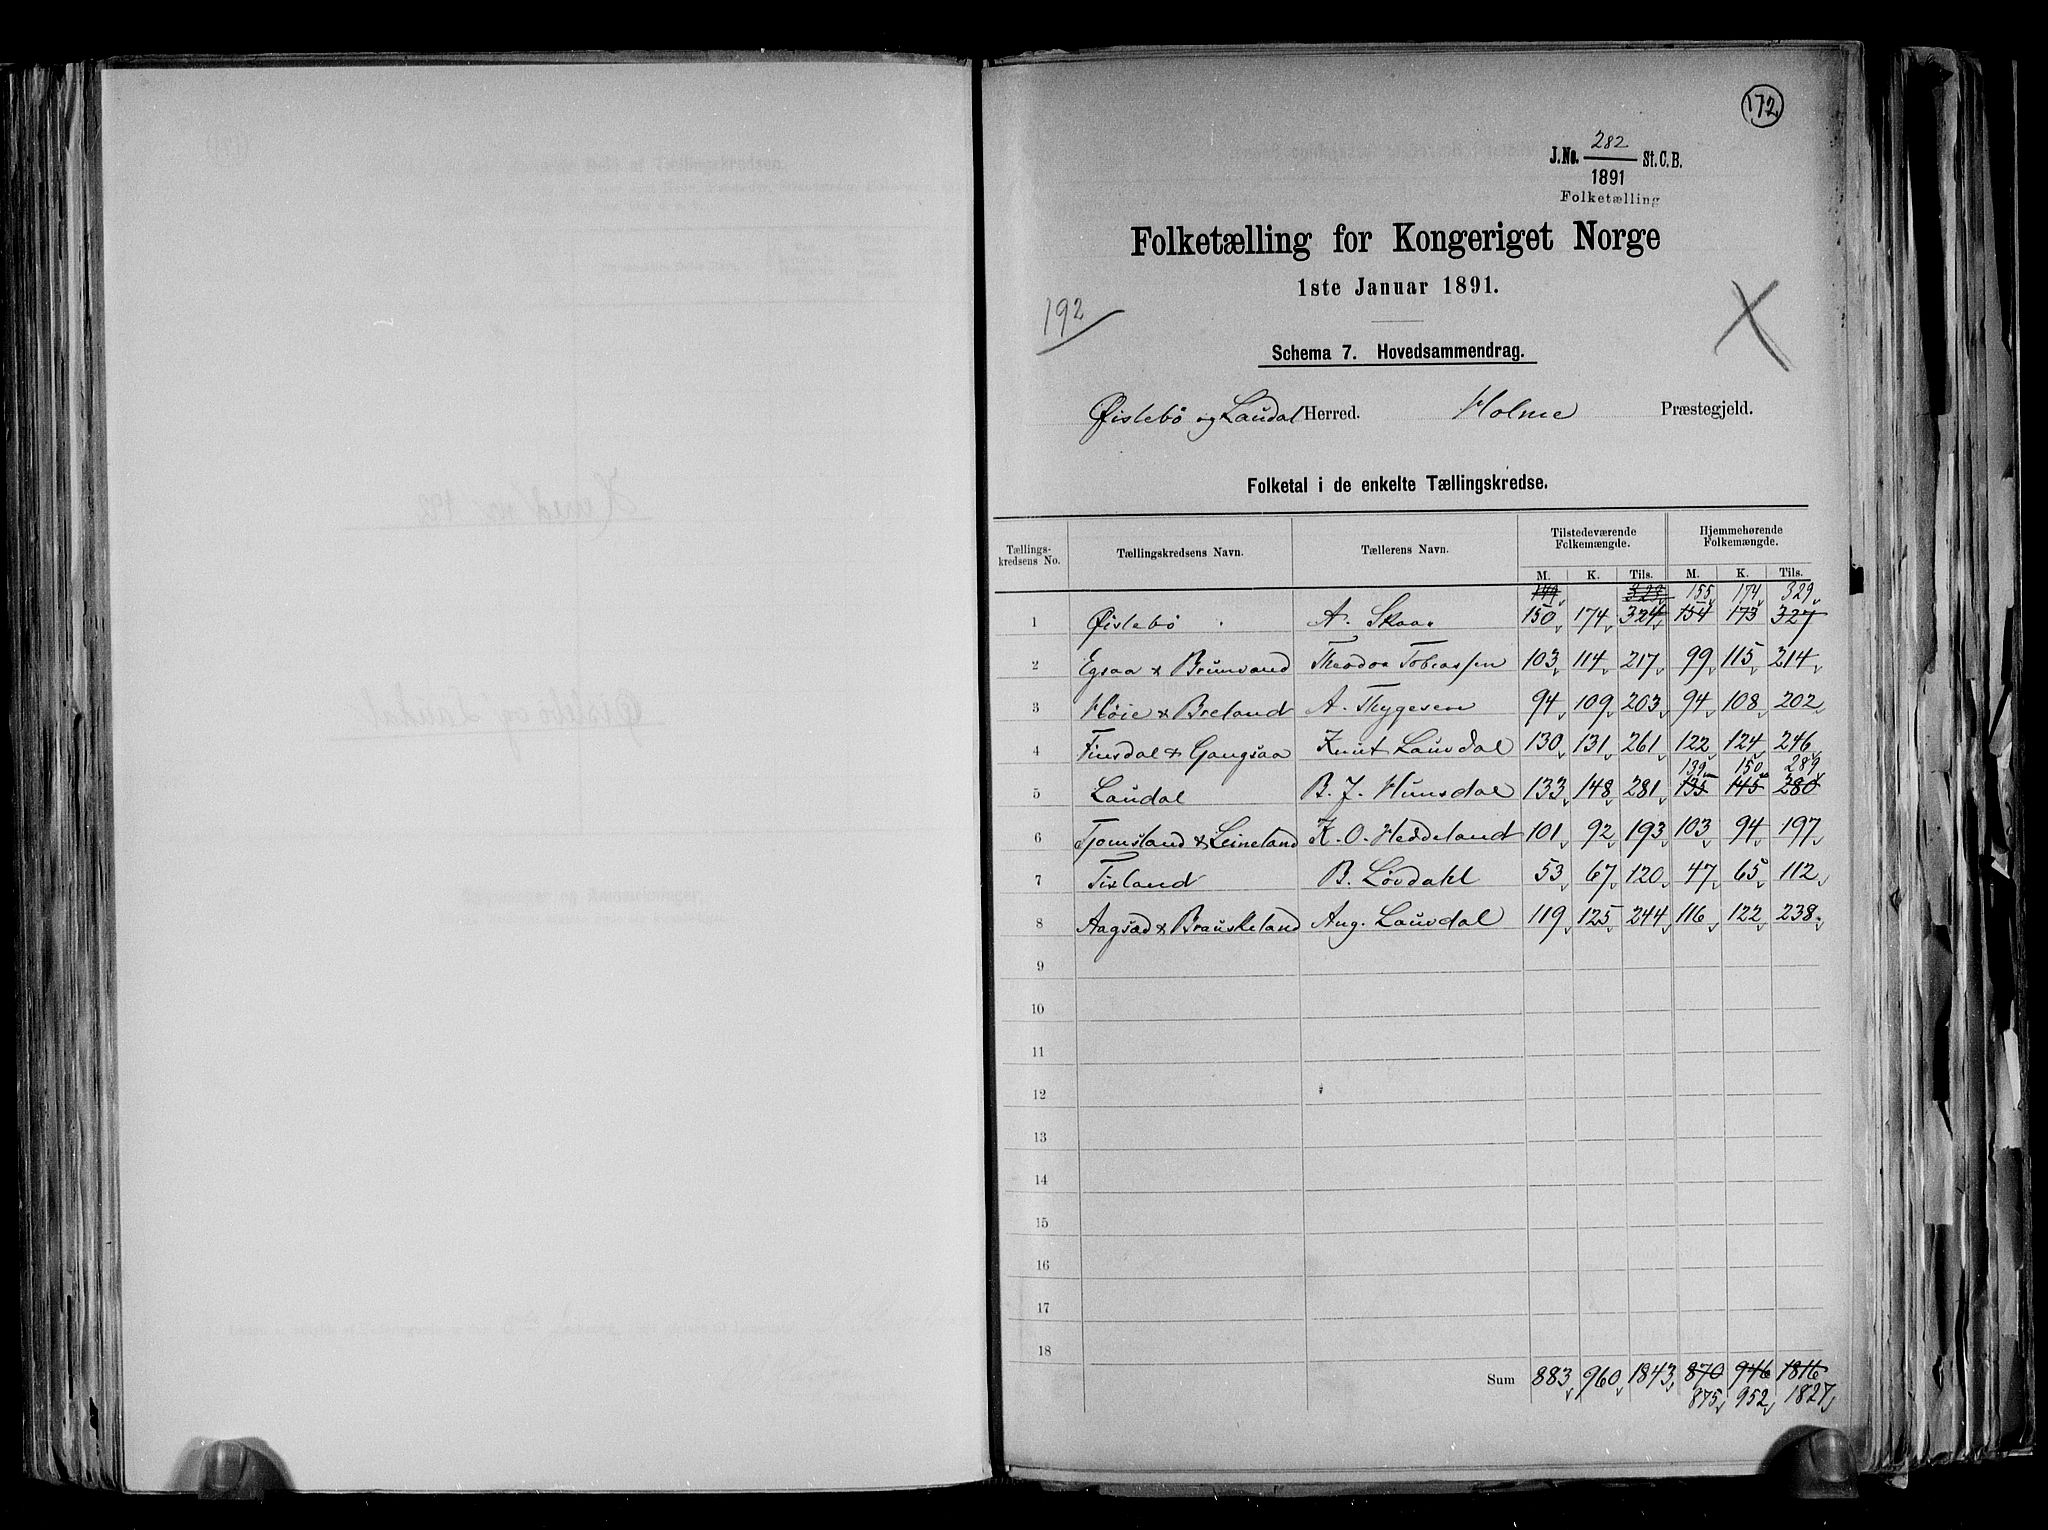 172
282
J. No. St. C. B.
1891
Folketælling
Folketælling for Kongeriget Norge
1ste Januar 1891.
192
Schema 7. Hovedsammendrag.
Øislebö og Laudal Herred. Holme Præstegjeld.
Folketal i de enkelte Tællingskredse.
Tællings-kredsens No. Tællingskredsens Navn. Tællerens Navn. Tilstedeværende Folkemængde. Hjemmehørende Folkemængde.
M. K. Tils. M. K. Tils.
149 323 155 174 329
1 Øislebö A. Skaar 150 174 324 154 173 327
2 Egsaa & Brunvand Theodor Tobiassen 103 114 217 99 115 214
3 Høie & Breland A. Thygesen 94 109 203 94 108 202
4 Finsdal & Gangsaa Knut Lauvdal 130 131 261 122 124 246
139 150 289
5 Laudal B. J. Hunsdal 133 148 281 135 145 280
6 Tjomsland & Leineland K. O. Heddeland 101 92 193 103 94 197
7 Tisland B. Lövdahl 53 67 120 47 65 112
8 Aagsæd & Brauskeland Aug. Lauvdal 119 125 244 116 122 238
9
10
11
12
13
14
15
16
17
18
Sum 883 960 1843 870 946 1816
875 952 1827